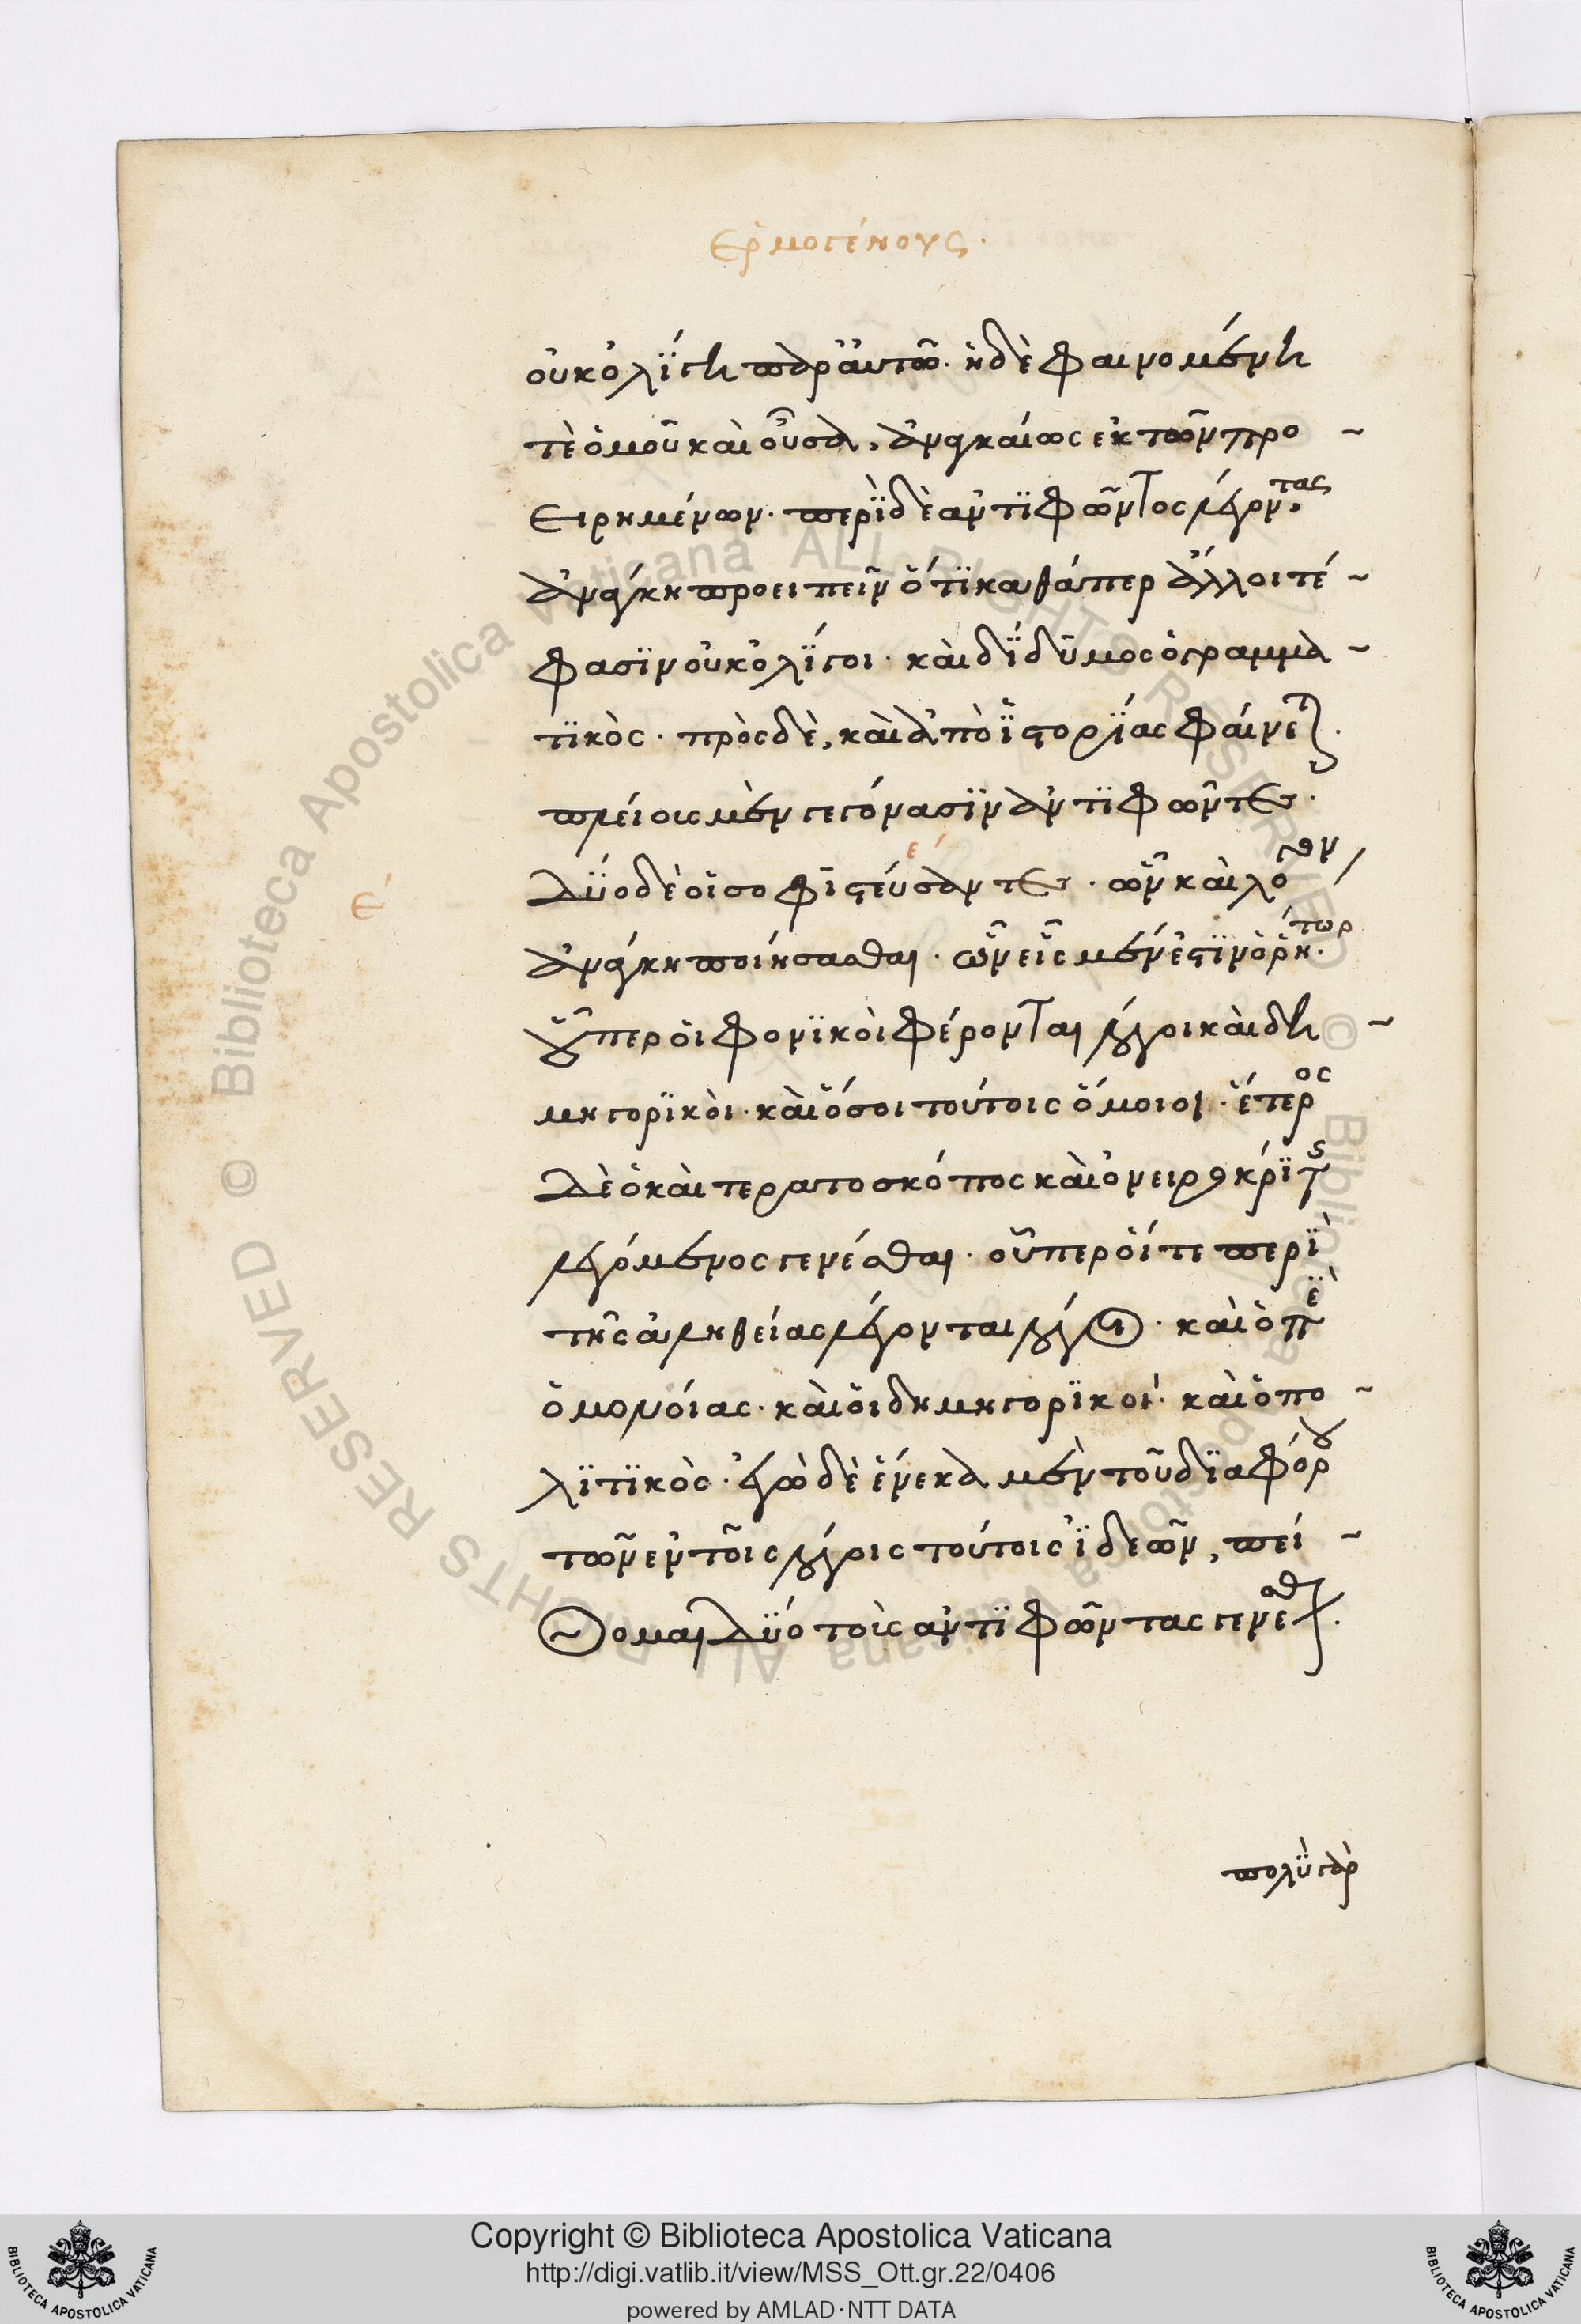 Ἑρμογένους.
οὐκ ὀλίγη παρ' αὐτῶ. ἡ δὲ φαινομένη
τὲ ὁμοῦ καὶ οὖσα, ἀναγκαίως ἐκ τῶν προ
ειρημένων. περὶ δὲ ἀντιφῶντος λέγοντας,
ἀνάγκη προειπεῖν ὅτι καθάπερ ἄλλοι τέ
φασιν οὐκ ὀλίγοι. καὶ δίδυμος ὁ γραμμα
τικὸς. πρὸς δὲ, καὶ ἀπὸ ἱστορίας φαίνεται.
πλείους μὲν γεγόνασιν ἀντιφῶντες.
δύο δὲ οἱ σοφιστεύσαντες. ὧν καὶ λόγον
ε´
ἀνάγκη ποιήσασθαι. ὧν εἷς μέν ἐστιν ὁ ῥήτωρ.
οὗπερ οἱ φονικοὶ φέρονται λόγοι καὶ δη
μηγορικοὶ. καὶ ὅσοι τούτοις ὅμοιοι. ἕτερος
δὲ ὁ καὶ τερατοσκόπος καὶ ὀνειροκρίτης
λεγόμενος γενέσθαι. οὗπερ οἵ τε περὶ
τῆς ἀληθείας λέγονται λόγοι. καὶ ὁ περὶ
ὁμονοίας. καὶ οἱ δημηγορικοὶ. καὶ ὁ πο
λιτικὸς. ἐγὼ δὲ ἕνεκα μὲν τοῦ διαφόρου
τῶν ἐν τοῖς λόγοις τούτοις ἰδεῶν, πεί
θομαι δύο τοὺς ἀντιφῶντας γενέσθαι.
πολὺ γὰρ
Copyright © Biblioteca Apostolica Vaticana
http://digi.vatlib.it/view/MSS_Ott.gr.22/0406
powered by AMLAD·NTT DATA